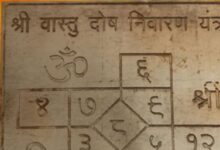 श्री वास्तु दोष निवारण यंत्र
ॐ ६
४ ७ ६ श्री
८
३ ५ १२